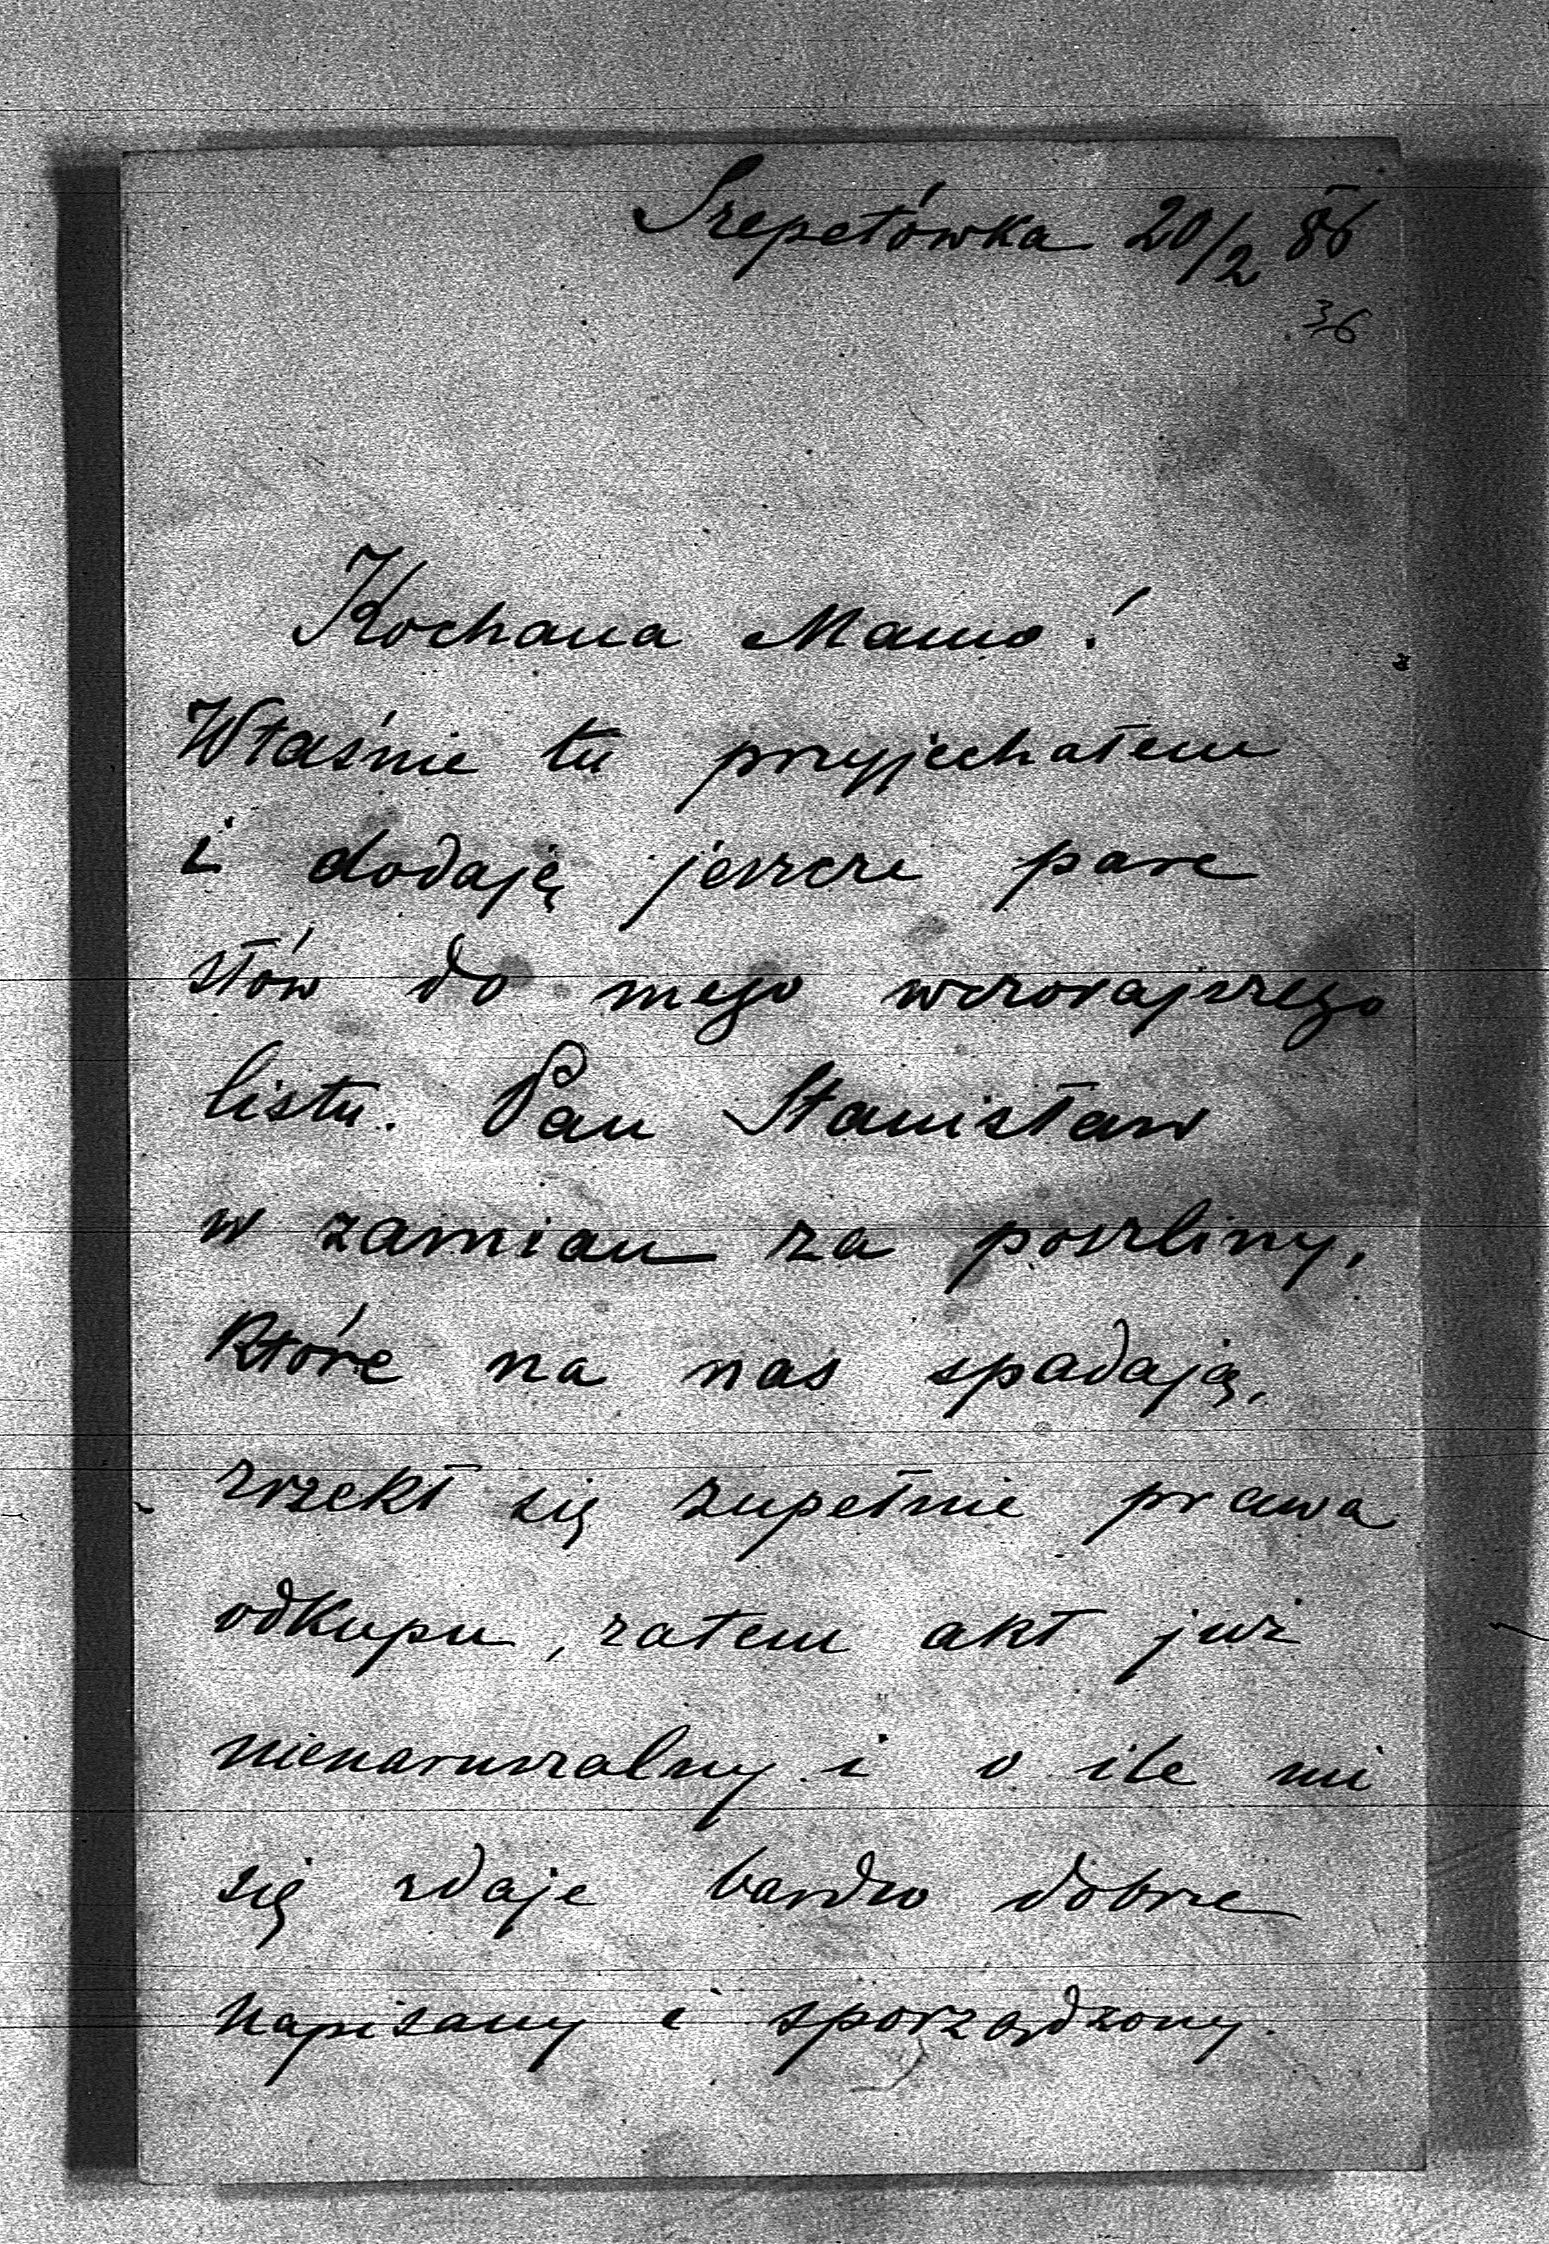 Szepetówka 20/2 86
36
Kochana Mamo!
Właśnie tu przyjechałem
i dodaję jeszcze parę
słów do mego wczorajszego
listu. Pan Stanisław
w zamian za poszliny,
które na nas spadają,
zrzekł się zupełnie prawa
odkupu, zatem akt już
nienaruszalny i o ile mi
się zdaje bardzo dobrze
napisany i sporządzony.